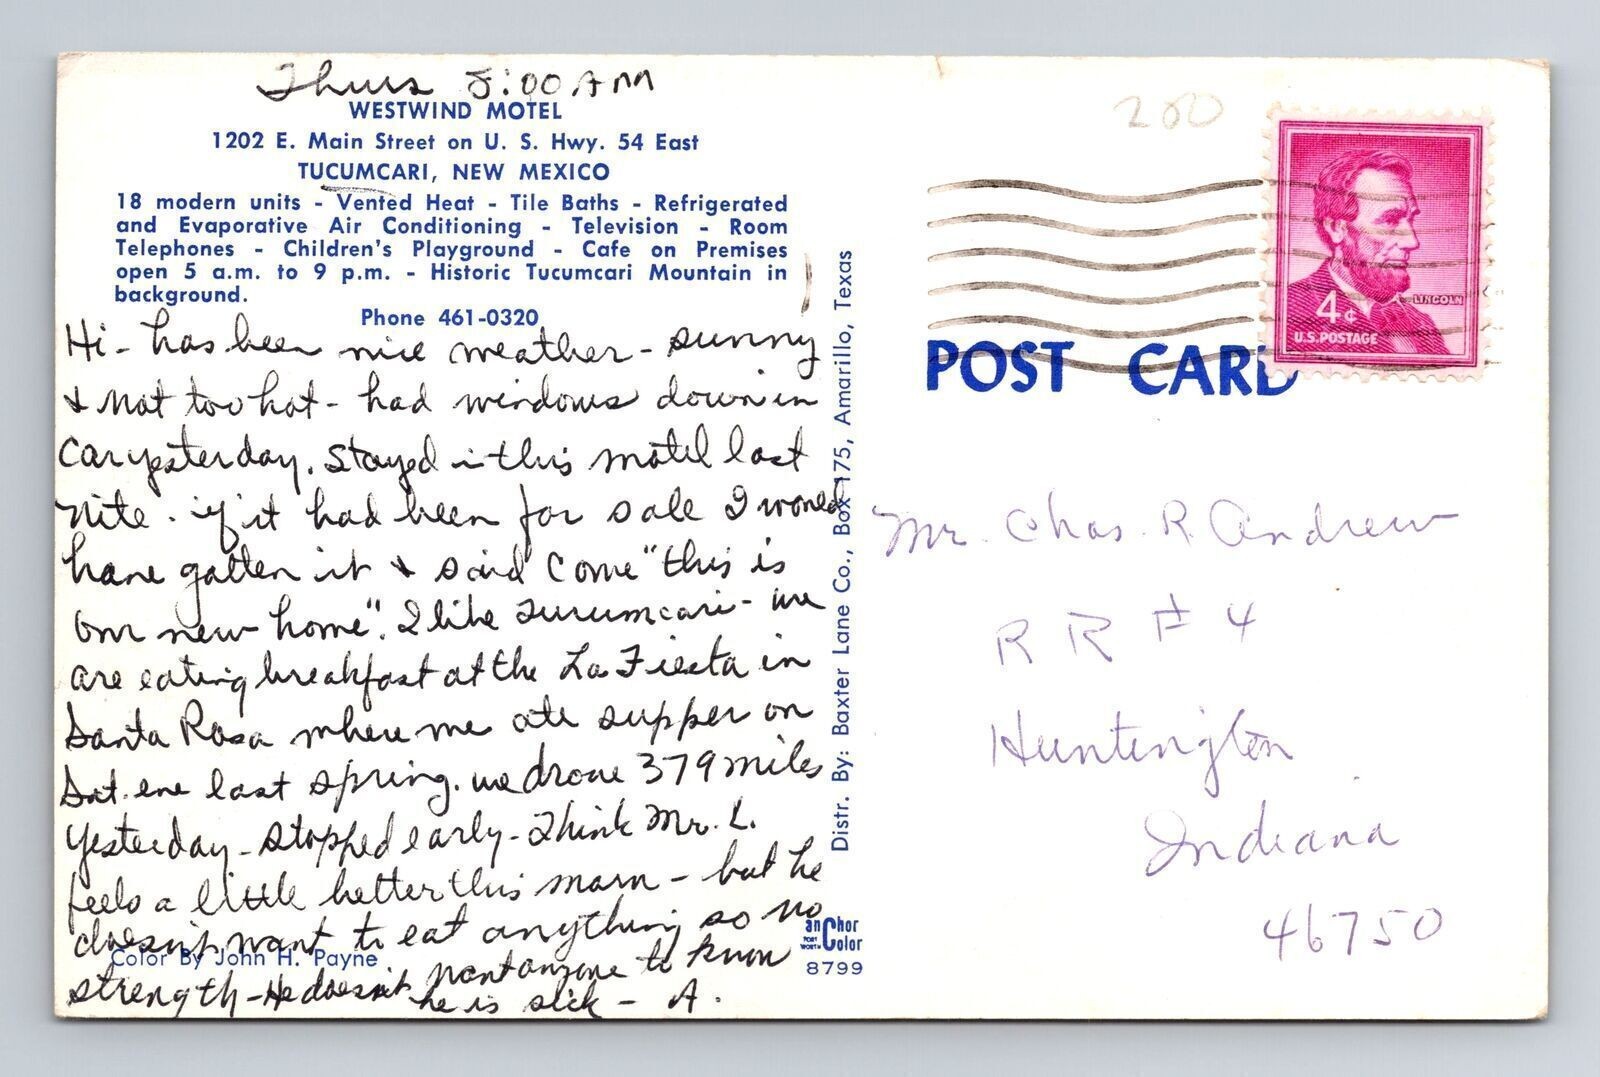 Thurs 8:00 AM
WESTWIND MOTEL
1202 E. Main Street on U. S. Hwy. 54 East
TUCUMCARI, NEW MEXICO
18 modern units - Vented Heat - Tile Baths - Refrigerated
and Evaporative Air Conditioning - Television - Room
Telephones - Children's Playground - Cafe on Premises
open 5 a.m. to 9 p.m. - Historic Tucumcari Mountain in
background.
Phone 461-0320
Hi - has been nice weather - sunny
& not too hot - had windows down in
car yesterday. Stayed in this motel last
nite. if it had been for sale I would
have gotten it & said come "this is
our new home". I like Tucumcari - we
are eating breakfast at the La Fiesta in
Santa Rosa where we ate supper on
Sat. eve last spring. we drove 379 miles
yesterday - stopped early - Think Mr. L.
feels a little better this morn - but he
doesn't want to eat anything so no
strength - He doesn't want anyone to know
he is sick - A.
Color By John H. Payne
Distr. By: Baxter Lane Co., Box 175, Amarillo, Texas
anChor
FORT WORTH Color
8799
200
4¢
LINCOLN
U.S. POSTAGE
POST CARD
Mr. Chas. R. Andrew
R R # 4
Huntington
Indiana
46750